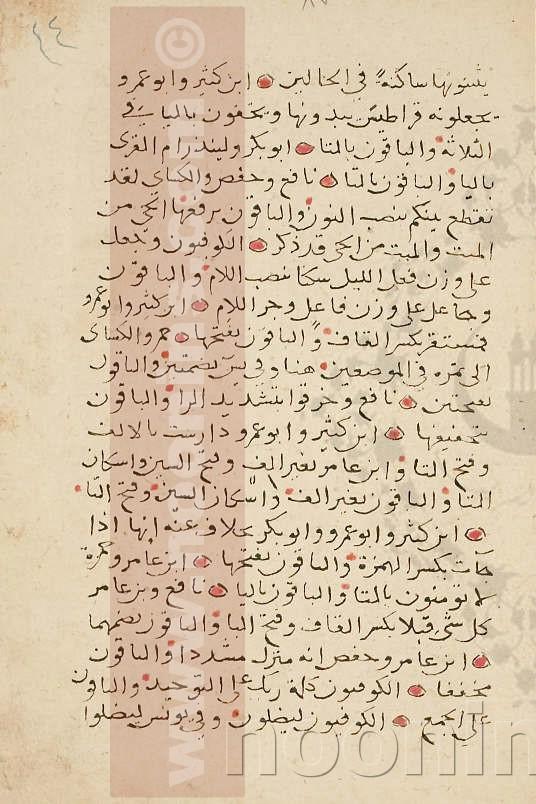 ٤٤
يثبتونها ساكنة في الحالين ابن كثير وابو عمرو
يجعلونه قراطيس يبدونها ويخفون باليا في
الثلاثة والباقون بالتا ابو بكر ولينذر ام القرى
باليا والباقون بالتا نافع وحفص والكساى لقد
تقطع بينكم بنصب النون والباقون برفعها الحى من
الميت والميت من الحى قد ذكر الكوفيون وجعل
على وزن فعل الليل سكنا بنصب اللام والباقون
وجاعل على وزن فاعل وجر اللام ابن كثير وابو عمرو
فمستقر بكسر القاف والباقون بفتحها حمزة والكساى
الى ثمره في الموضعين هنا وفي يس بضمتين والباقون
بفتحتين نافع وخرقوا بتشديد الرا والباقون
بتخفيفها ابن كثير وابو عمرو دارست بالالف
وفتح التا وابن عامر بغير الف وفتح السين واسكان
التا والباقون بغير الف واسكان السين وفتح التا
ابن كثير وابو عمرو وابو بكر بخلاف عنه انها اذا
جآت بكسر الهمزة والباقون بفتحها ابن عامر وحمزة
لا تومنون بالتا والباقون باليا نافع وبن عامر
كل شى قبلا بكسر القاف وفتح البا والباقون بضمهما
ابن عامر وحفص انه منزل مشددا والباقون
مخففا الكوفيون كلمة ربك على التوحيد والباقون
على الجمع الكوفيون ليضلون وفي يونس ليضلوا
noonin